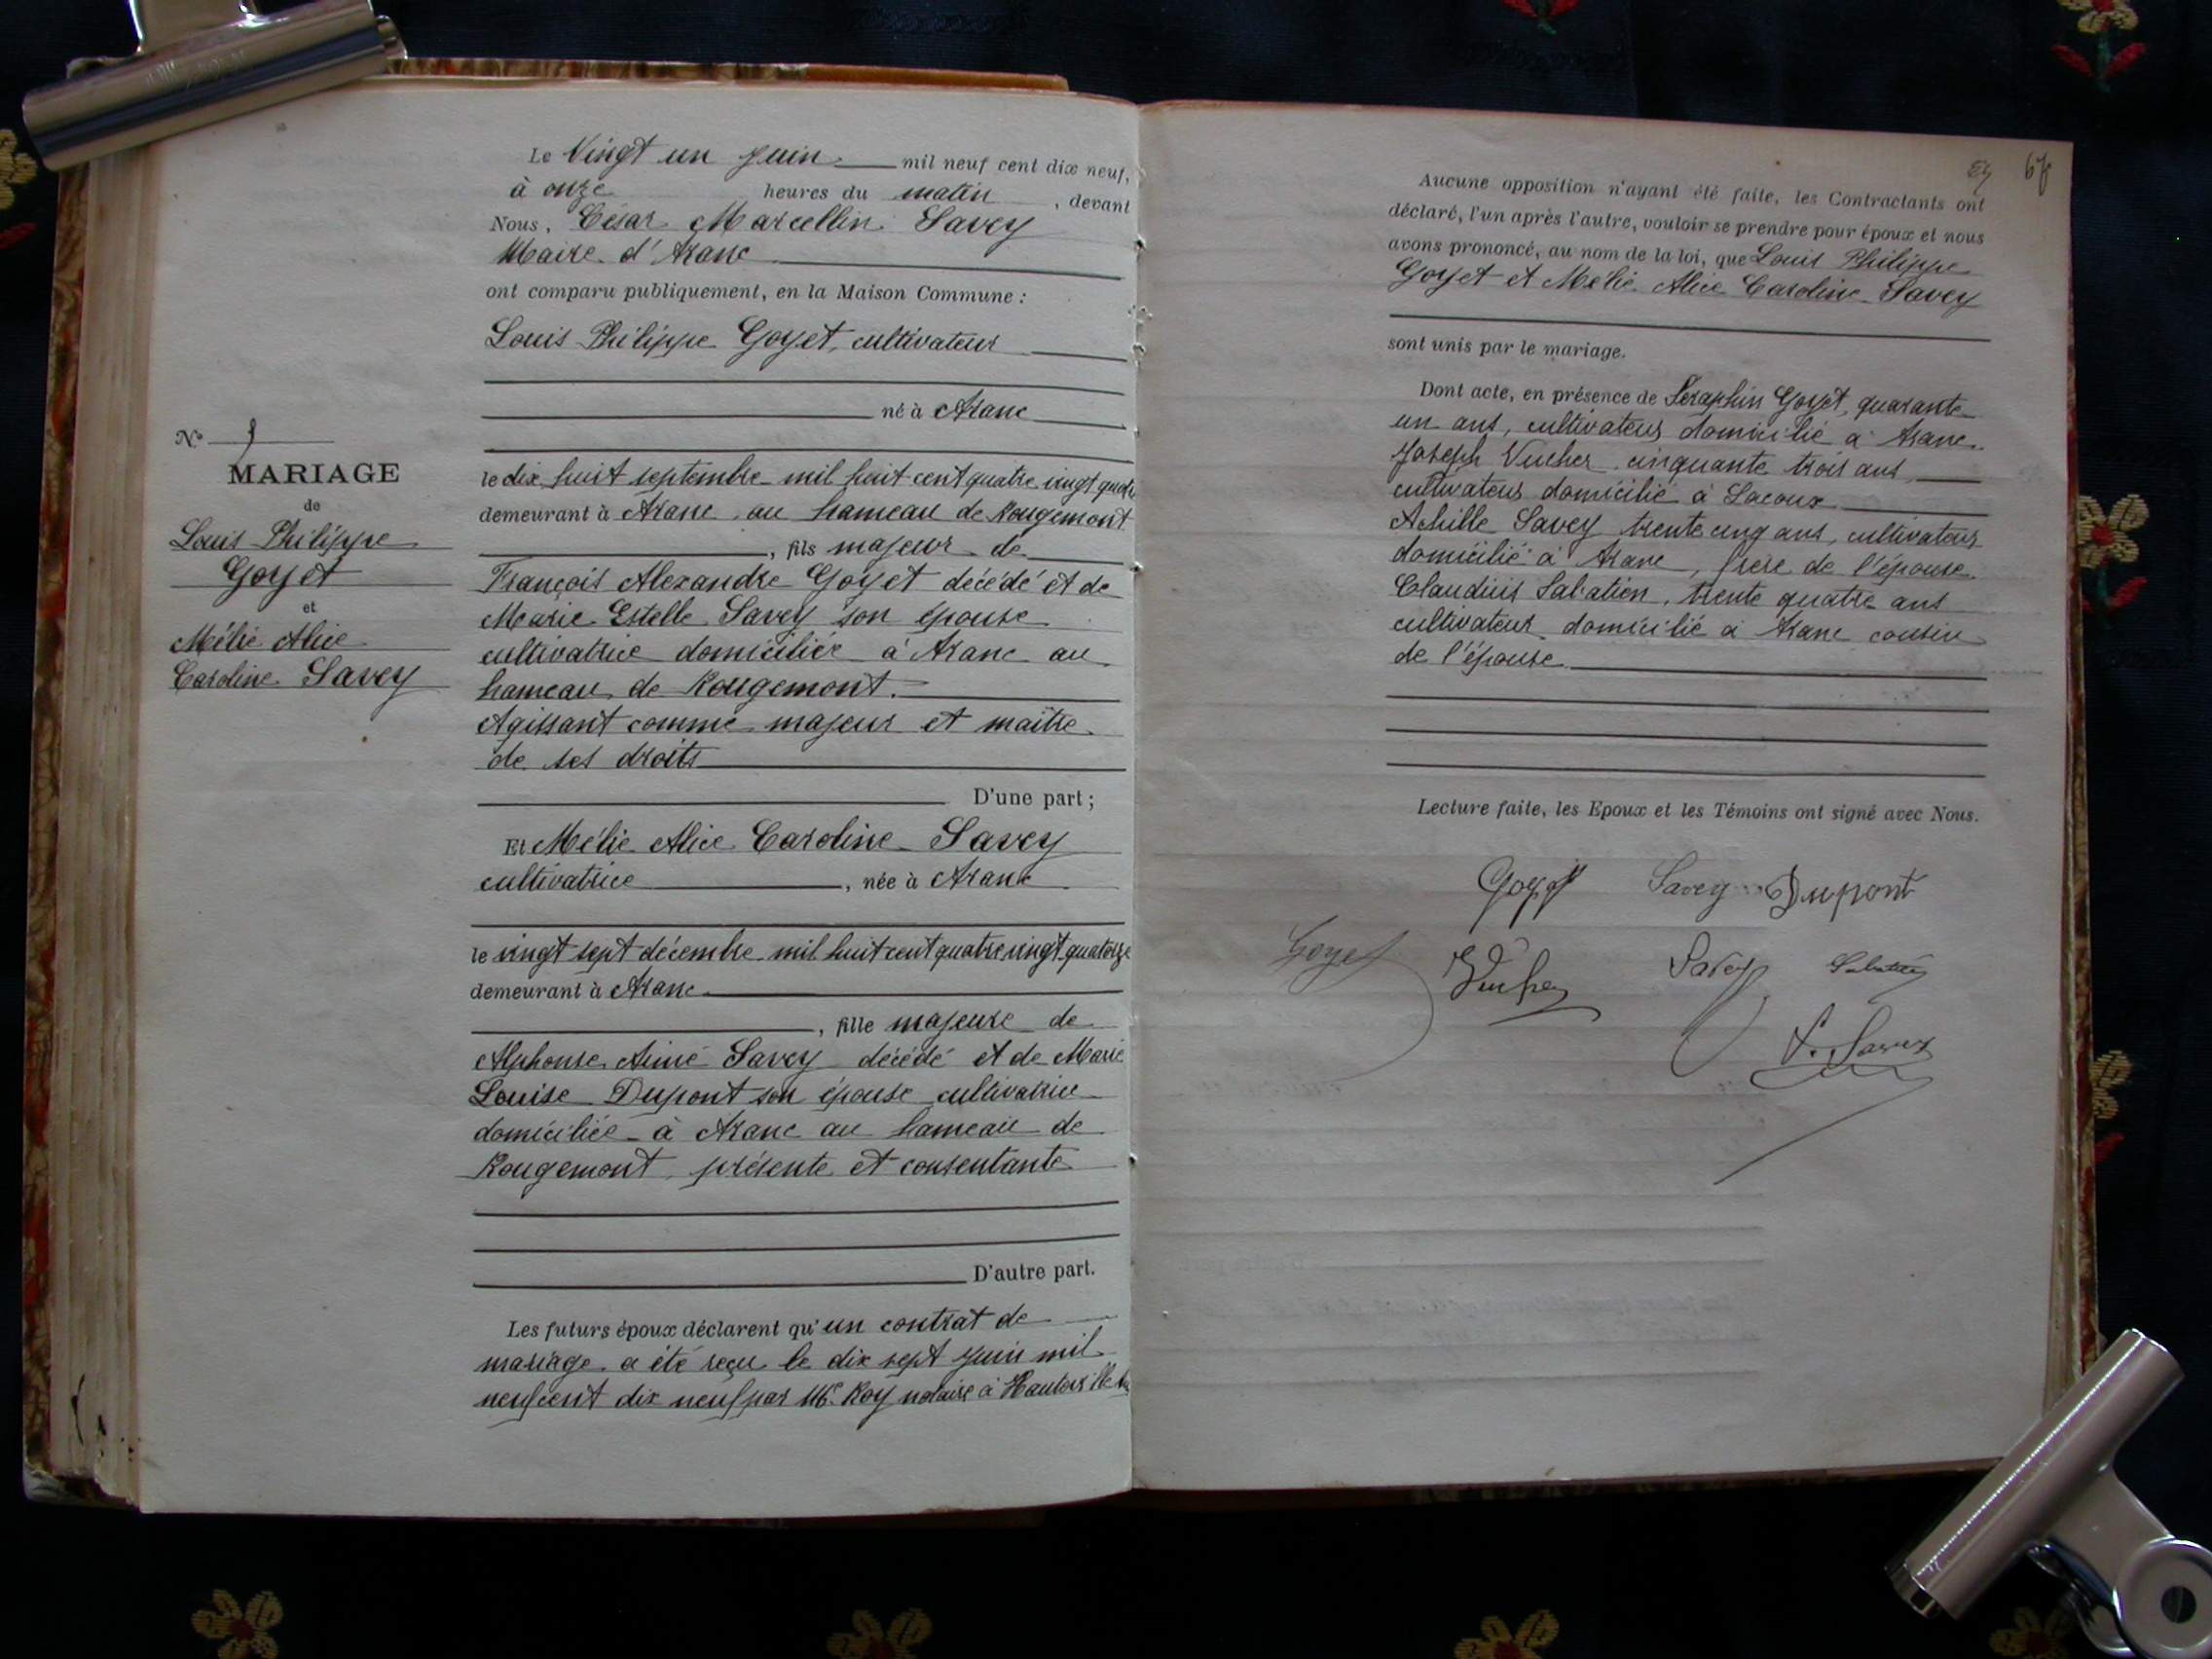 N°
MARIAGE
de
Louis Philippe
Goyet
et
Mélie Alice
Caroline Savey
Le Vingt un Juin mil neuf cent dix neuf,
à onze heures du matin, devant
Nous, César Marcellin Savey
Maire d'Aranc
ont comparu publiquement, en la Maison Commune :
Louis Philippe Goyet, cultivateur
né à Aranc
le dix huit septembre mil huit cent quatre vingt
demeurant à Aranc au hameau de Rougemont
, fils majeur de
François Alexandre Goyet décédé et de
Marie Estelle Savey son épouse
cultivatrice domiciliée à Aranc au
hameau de Rougemont.
Agissant comme majeur et maître
de ses droits
D'une part ;
Et Mélie Alice Caroline Savey
cultivatrice, née à Aranc
le vingt sept décembre mil huit cent quatre vingt quatorze
demeurant à Aranc
, fille majeure de
Alphonse Aimé Savey décédé et de Marie
Louise Dupont son épouse cultivatrice
domiciliée à Aranc au hameau de
Rougemont, présente et consentante
D'autre part.
Les futurs époux déclarent qu'un contrat de
mariage a été reçu le dix sept juin mil
neuf cent dix neuf par Me Roy notaire à Hauteville
67
Aucune opposition n'ayant été faite, les Contractants ont
déclaré, l'un après l'autre, vouloir se prendre pour époux et nous
avons prononcé, au nom de la loi, que Louis Philippe
Goyet et Mélie Alice Caroline Savey
sont unis par le mariage.
Dont acte, en présence de Séraphin Goyet, quarante
un ans, cultivateur domicilié à Aranc.
Joseph Vucher cinquante trois ans,
cultivateur domicilié à Lacoux
Achille Savey trente cinq ans, cultivateur
domicilié à Aranc, frère de l'épouse.
Claudius Sabatien, trente quatre ans
cultivateur domicilié à Aranc cousin
de l'épouse
Lecture faite, les Epoux et les Témoins ont signé avec Nous.
Goyet Savey Dupont
Goyet Vucher Savey
Savey